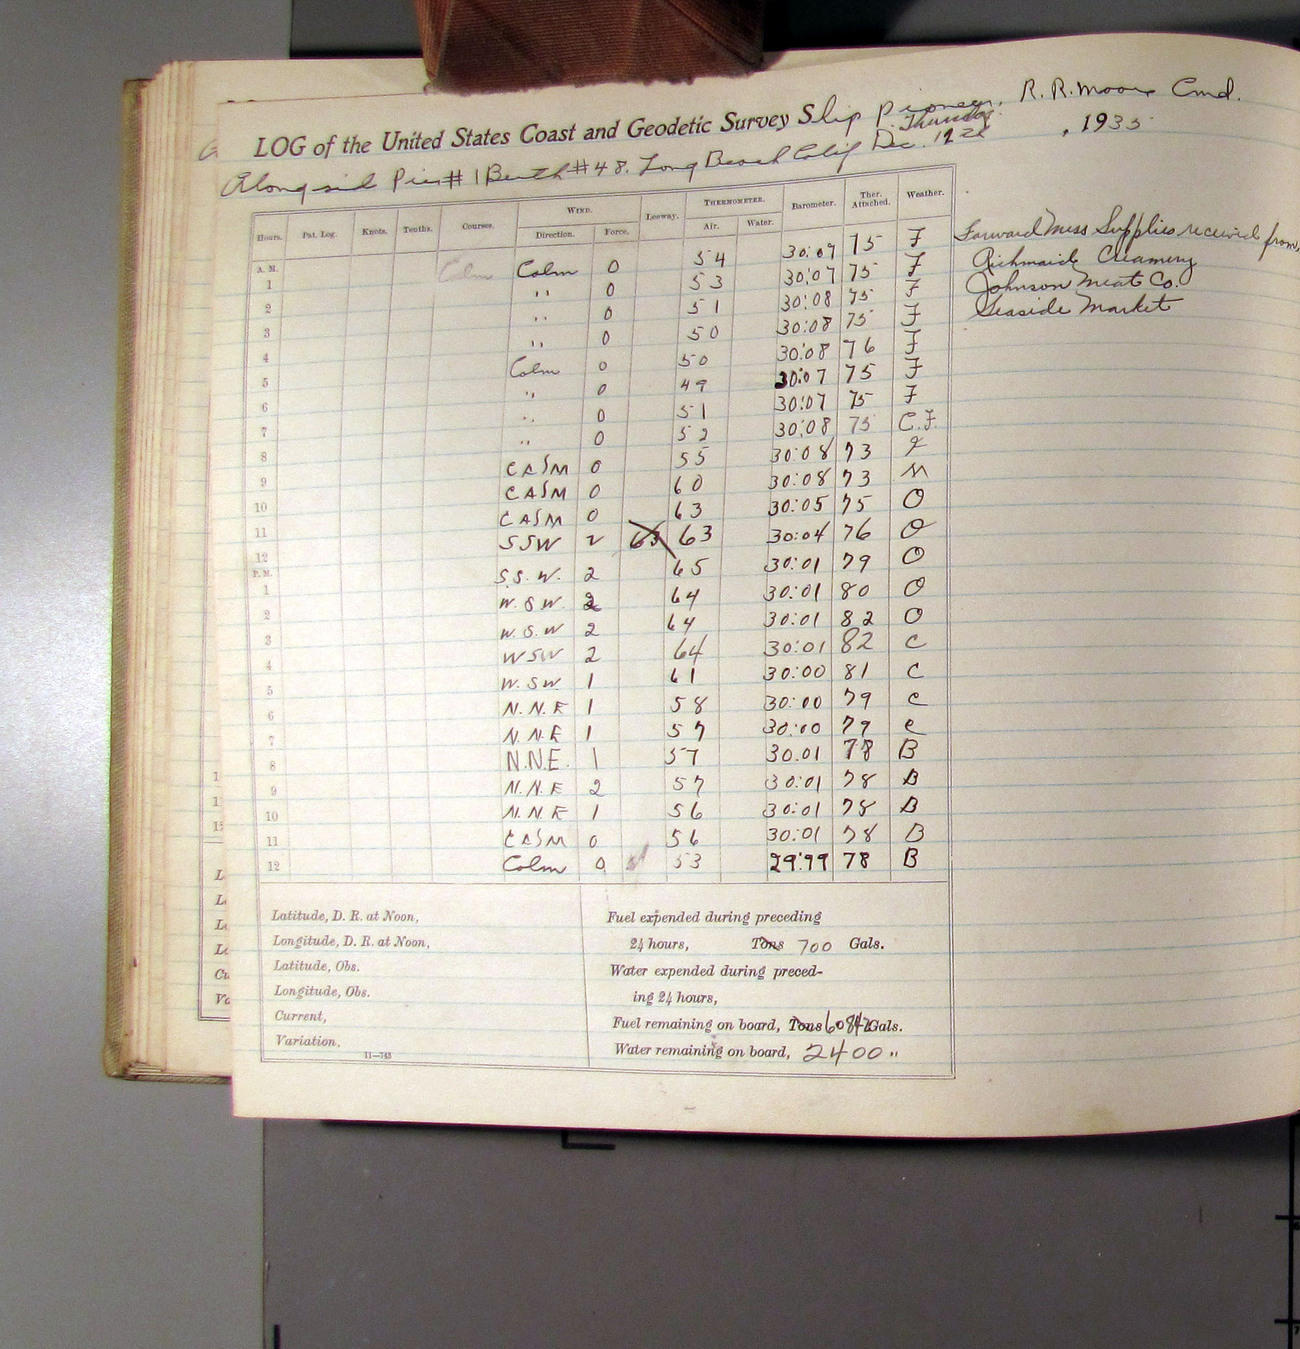 LOG of the United States Coast and Geodetic Survey Ship Pioneer, R. R. Moore Cmd.
Thursday
, 1935
Alongside Pier #1 Berth #48. Long Beach Calif Dec.
Hours. Pat. Log. Knots. Tenths. Courses. WIND. Leeway. THERMOMETER. Barometer. Ther. Attached. Weather.
Direction. Force. Air. Water.
A. M.
1 Calm 0 54 30:07 75 F
2 " 0 53 30:07 75 F
3 " 0 51 30:08 75 F
4 " 0 50 30:08 75 F
5 Calm 0 50 30:08 76 F
6 " 0 49 30:07 75 F
7 " 0 51 30:07 75 F
8 " 0 52 30:08 75 C.F.
9 CALM 0 55 30:08 73
10 CALM 0 60 30:08 73 M
11 CALM 0 63 30:05 75 O
12 SSW 2 63 63 30:04 76 O
P. M.
1 S.S.W. 2 65 30:01 79 O
2 W.S.W. 2 64 30:01 80 O
3 W.S.W 2 64 30:01 82 O
4 WSW 2 64 30:01 82 C
5 W.SW. 1 61 30:00 81 C
6 N.N.E 1 58 30:00 79 C
7 N.N.E 1 57 30:00 79 C
8 N.N.E. 1 57 30.01 78 B
9 N.N.E 2 57 30:01 78 B
10 N.N.E 1 56 30:01 78 B
11 CALM 0 56 30:01 78 B
12 Calm 0 53 29:99 78 B
Forward Mess Supplies received from
Richmaid Creamery
Johnson Meat Co.
Seaside Market
Latitude, D. R. at Noon,
Longitude, D. R. at Noon,
Latitude, Obs.
Longitude, Obs.
Current,
Variation,
11—743
Fuel expended during preceding
24 hours, Tons 700 Gals.
Water expended during preced-
ing 24 hours,
Fuel remaining on board, Tons Gals.
Water remaining on board, 2400 "